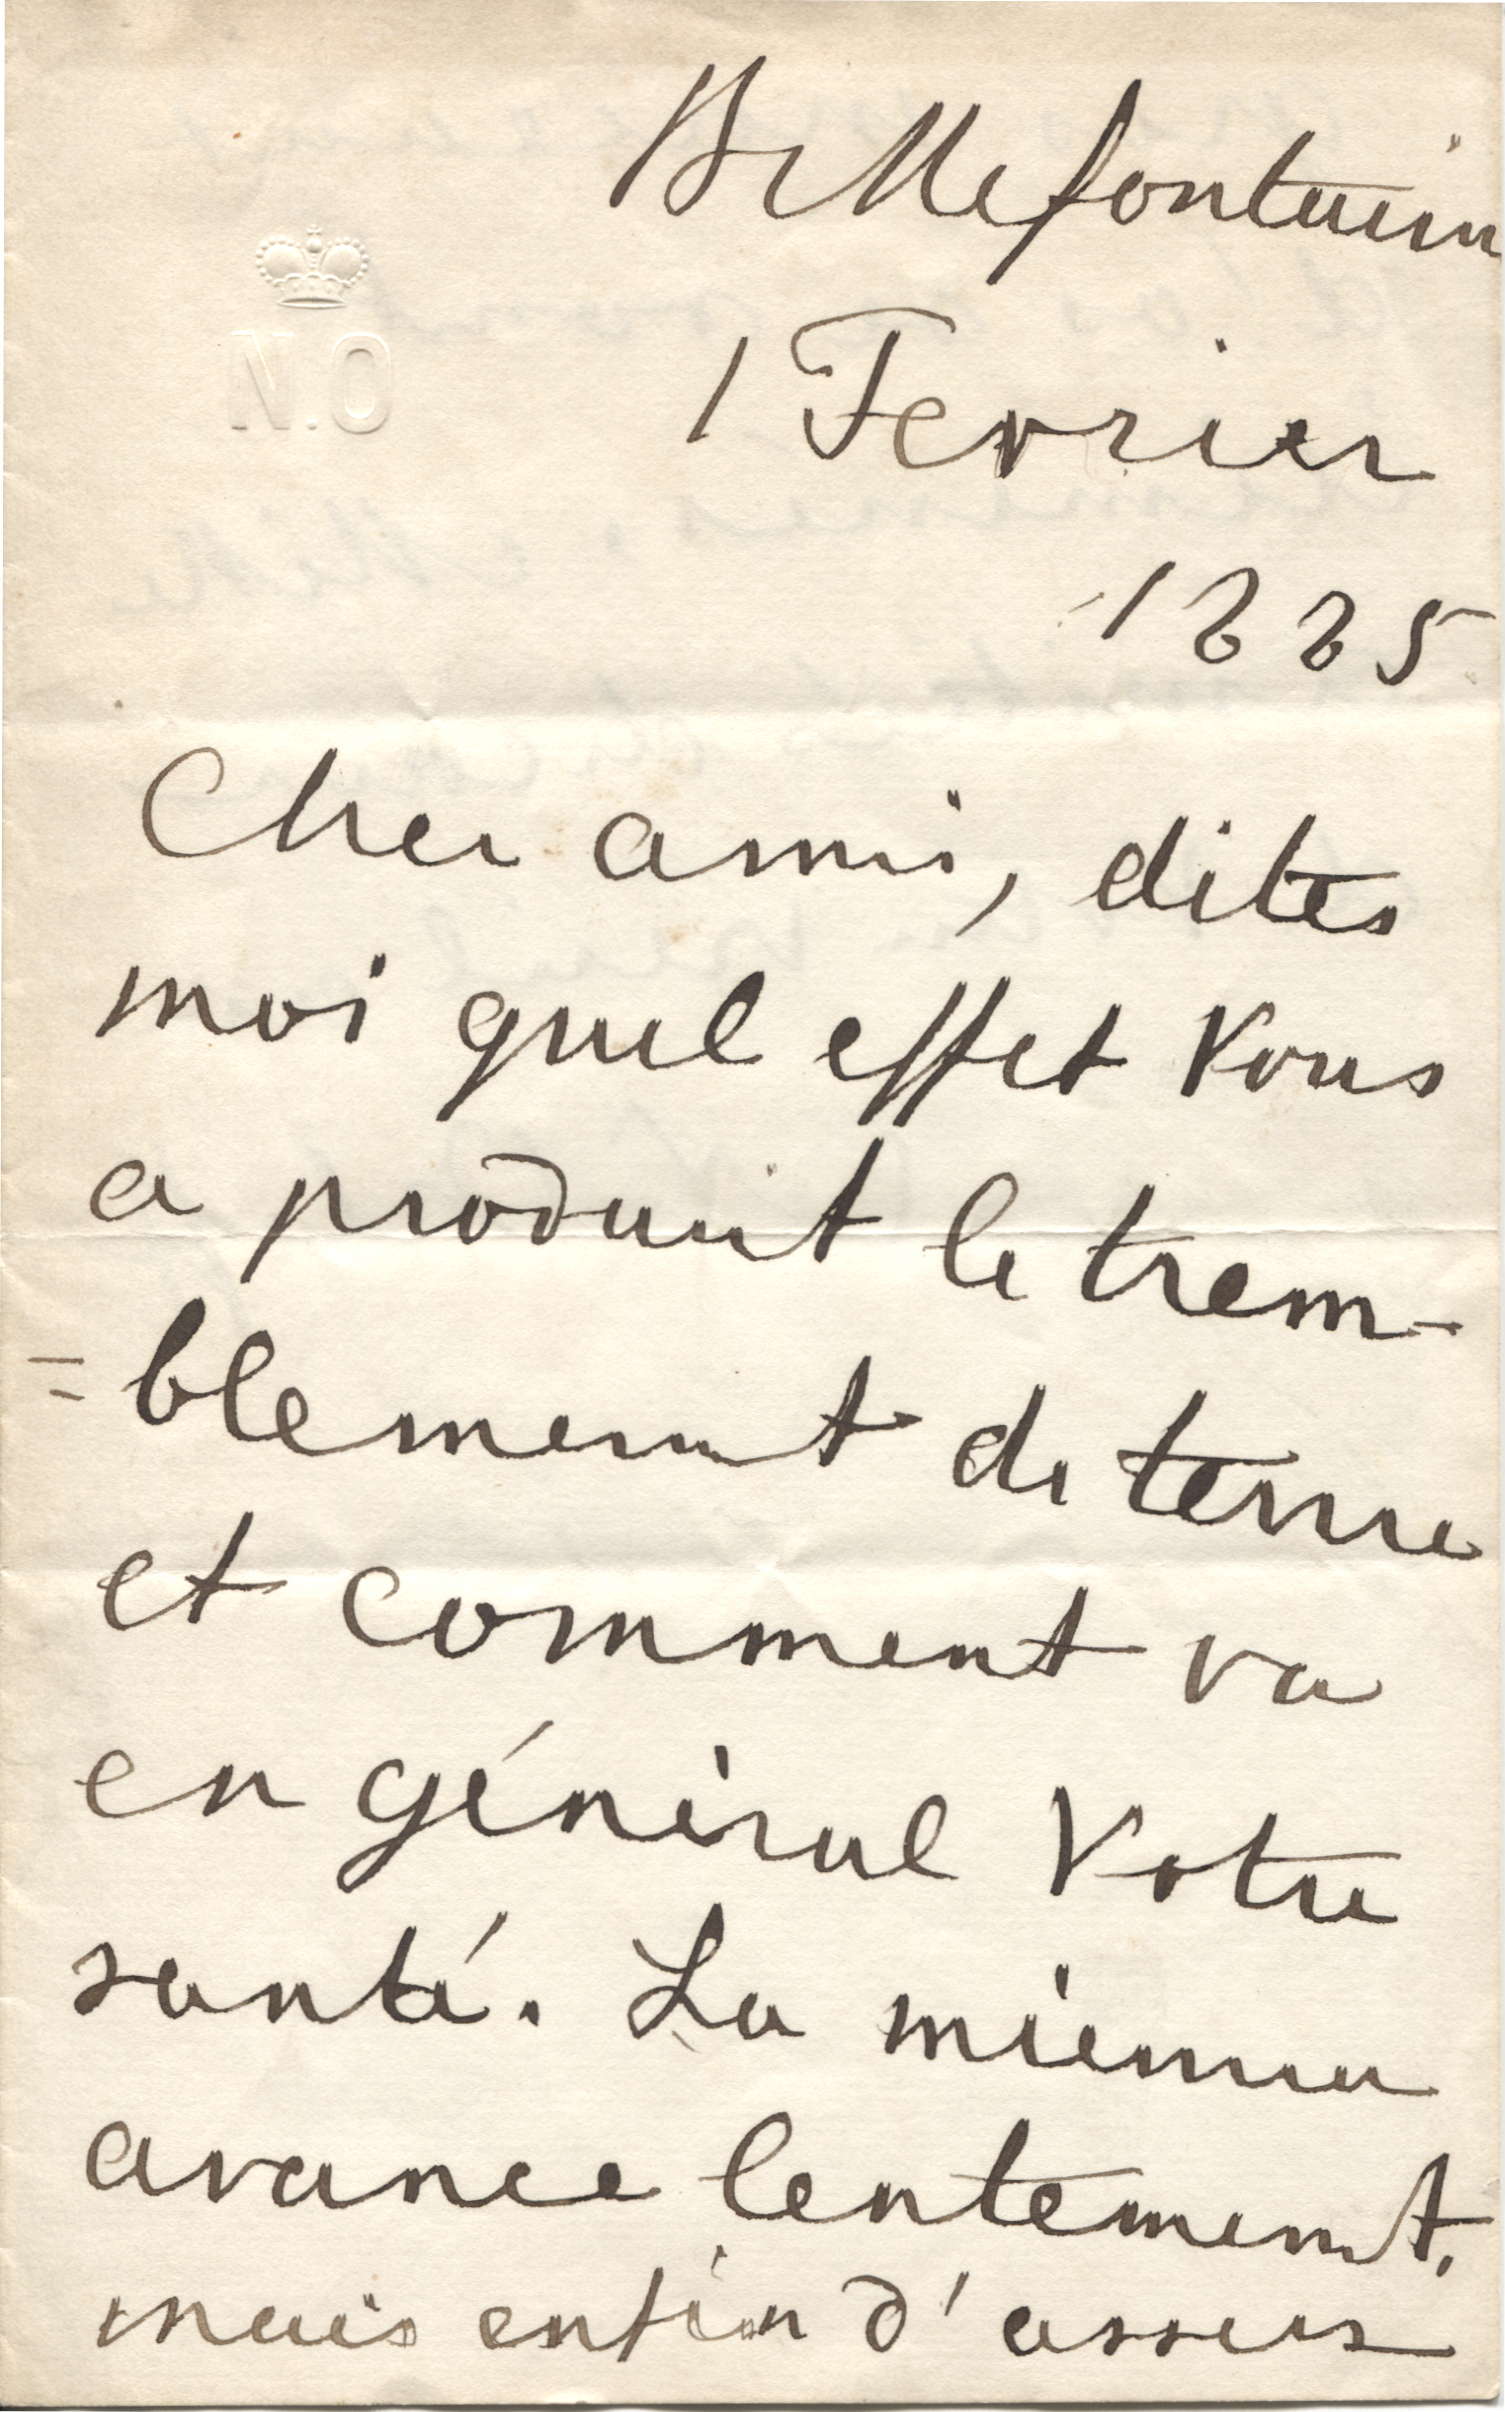 Bellefontaine
N.O
1 Fevrier
1885
Cher ami, dites
moi quel effet Vous
a produit le trem-
=blement de terre
et comment va
en général Votre
santé. La mienne
avance lentement,
mais enfin d'assez